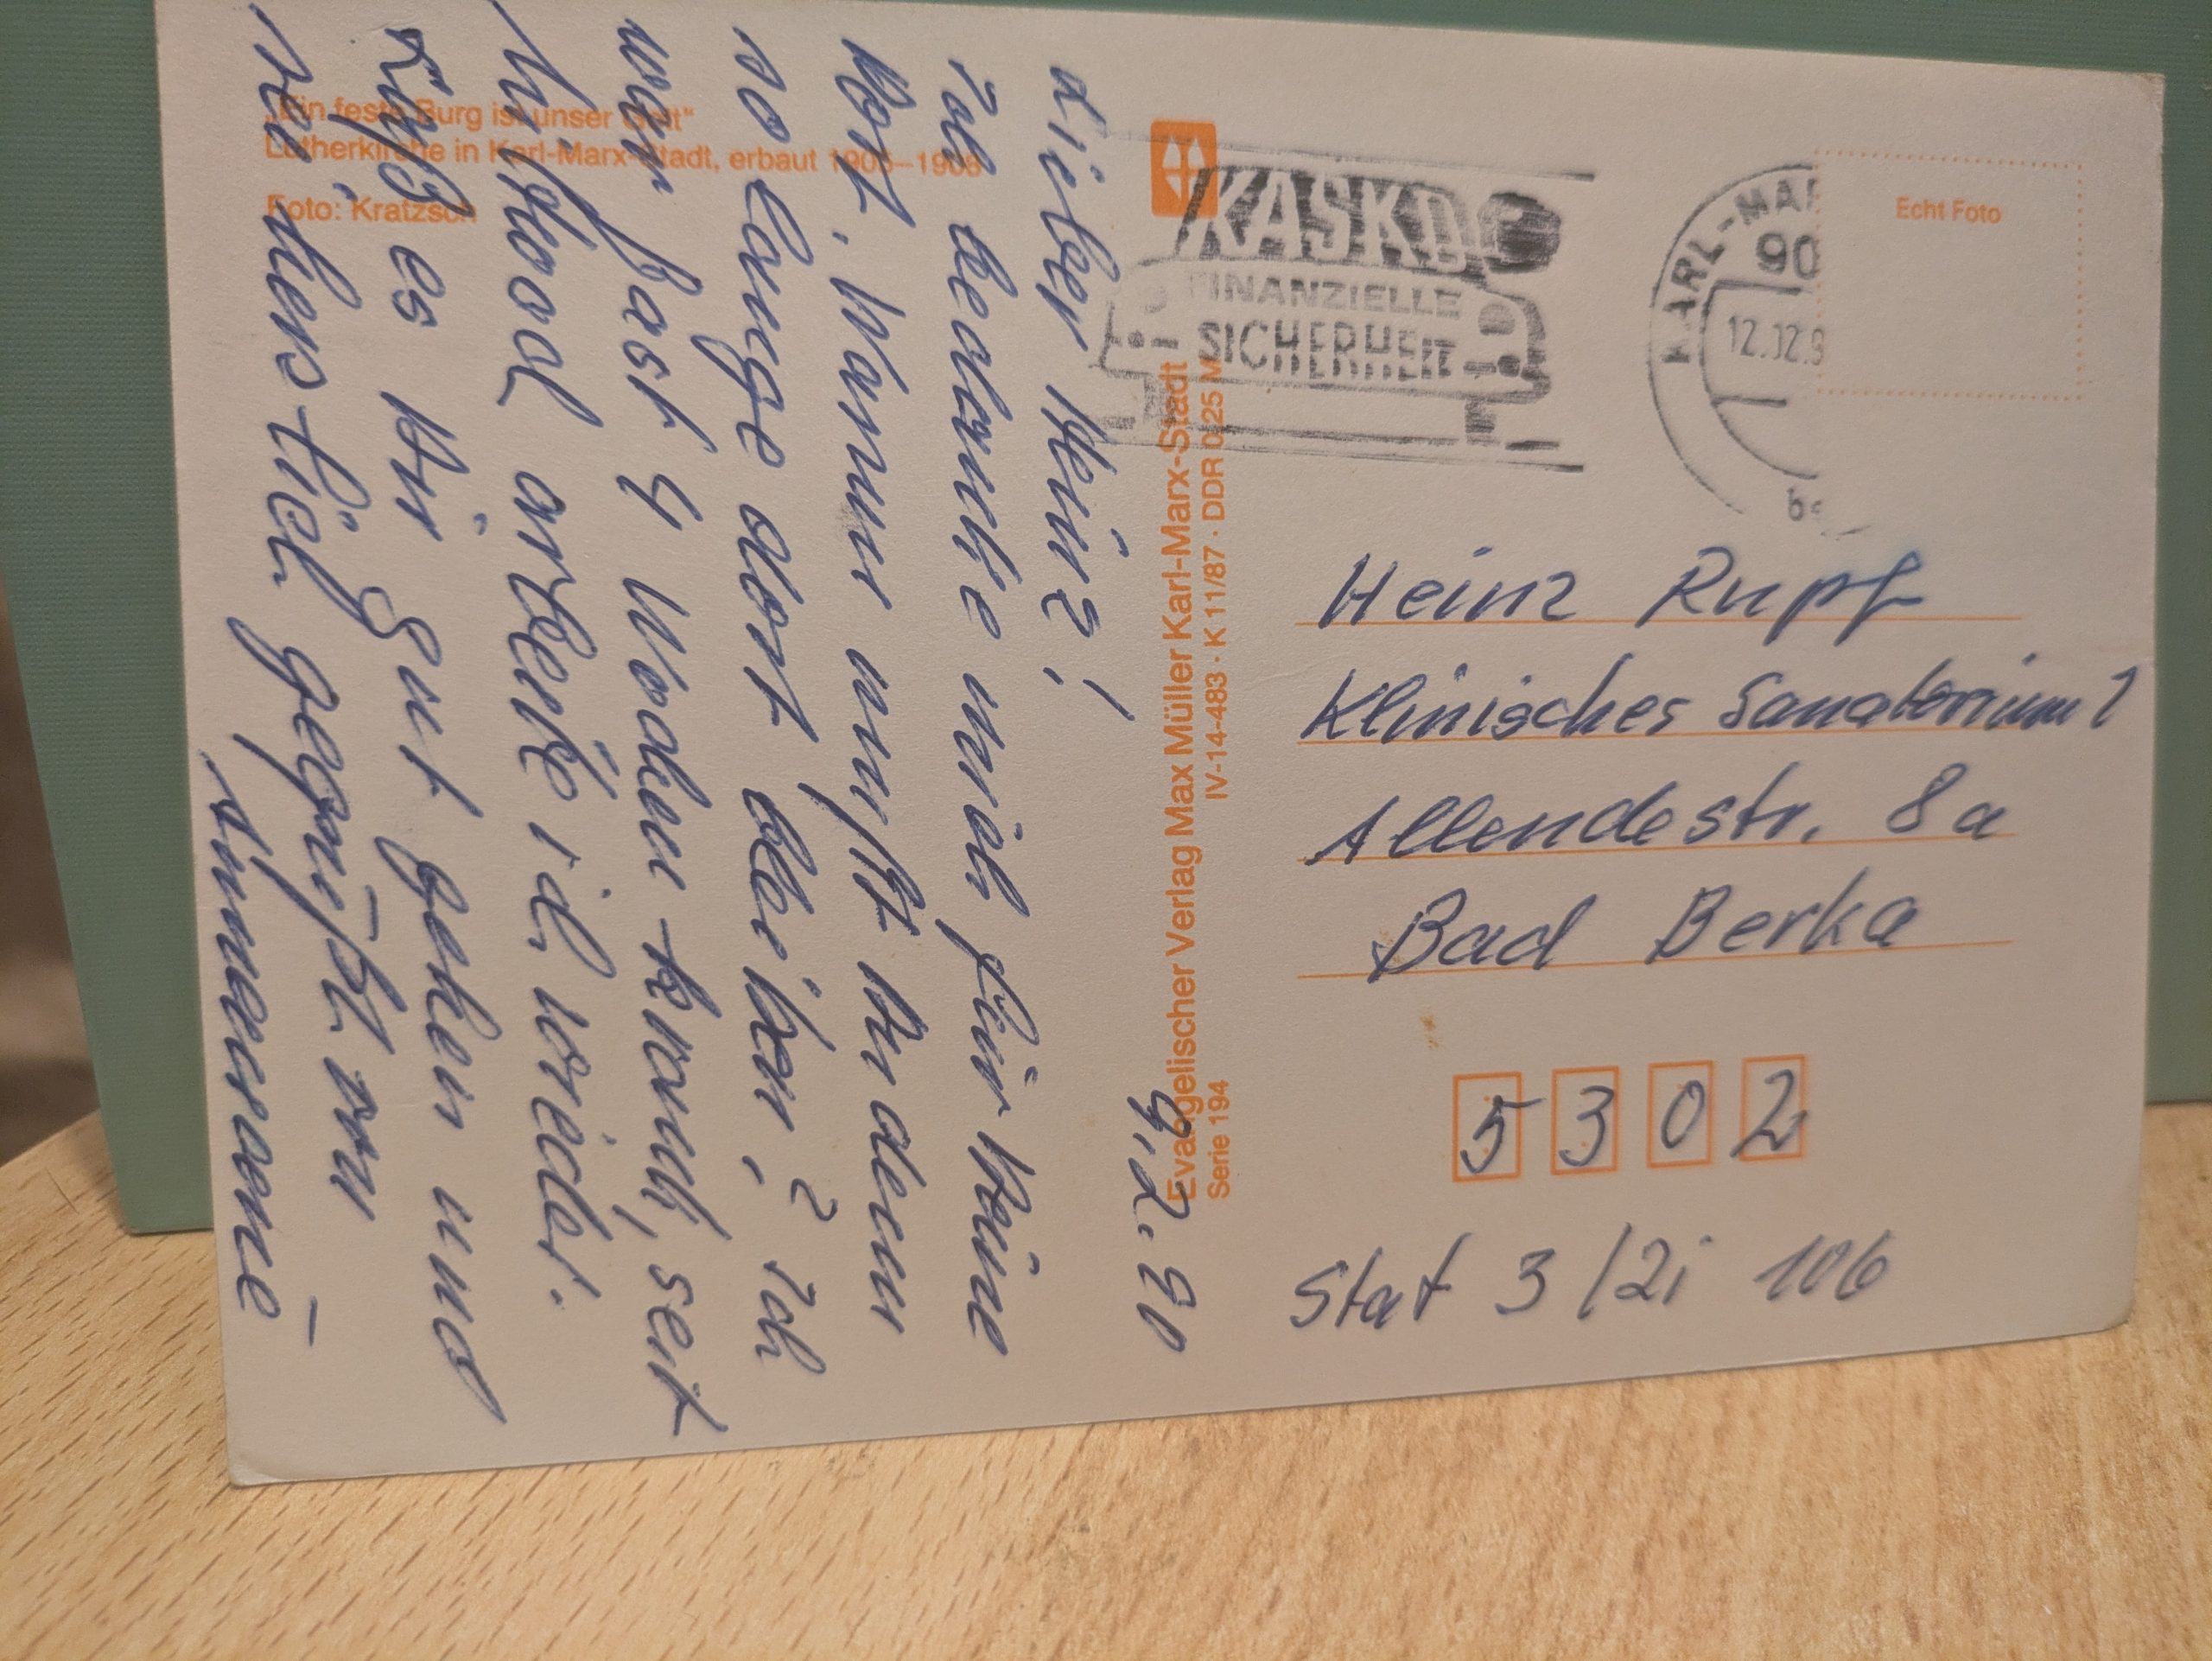 „Ein feste Burg ist unser Gott"
Lutherkirche in Karl-Marx-Stadt, erbaut 1905–1908
Foto: Kratzsch
9.2.90
Lieber Heinz!
Ich bedanke mich für Deine
Kart. Warum mußt Du denn
so lange dort bleiben? Ich
war fast 4 Wochen krank, seit
Mittwoch arbeite ich wieder.
Laß es Dir gut gehen und
sei herzlich gegrüßt von
Annerose
Evangelischer Verlag Max Müller Karl-Marx-Stadt
IV-14-483 · K 11/87 · DDR 025 M
Serie 194
KASKO
FINANZIELLE
SICHERHEIT
KARL-MAR
90
12.02.9
Echt Foto
Heinz Rupf
Klinisches Sanatorium
Allendestr. 8a
Bad Berka
5302
Stat 3/Zi 106